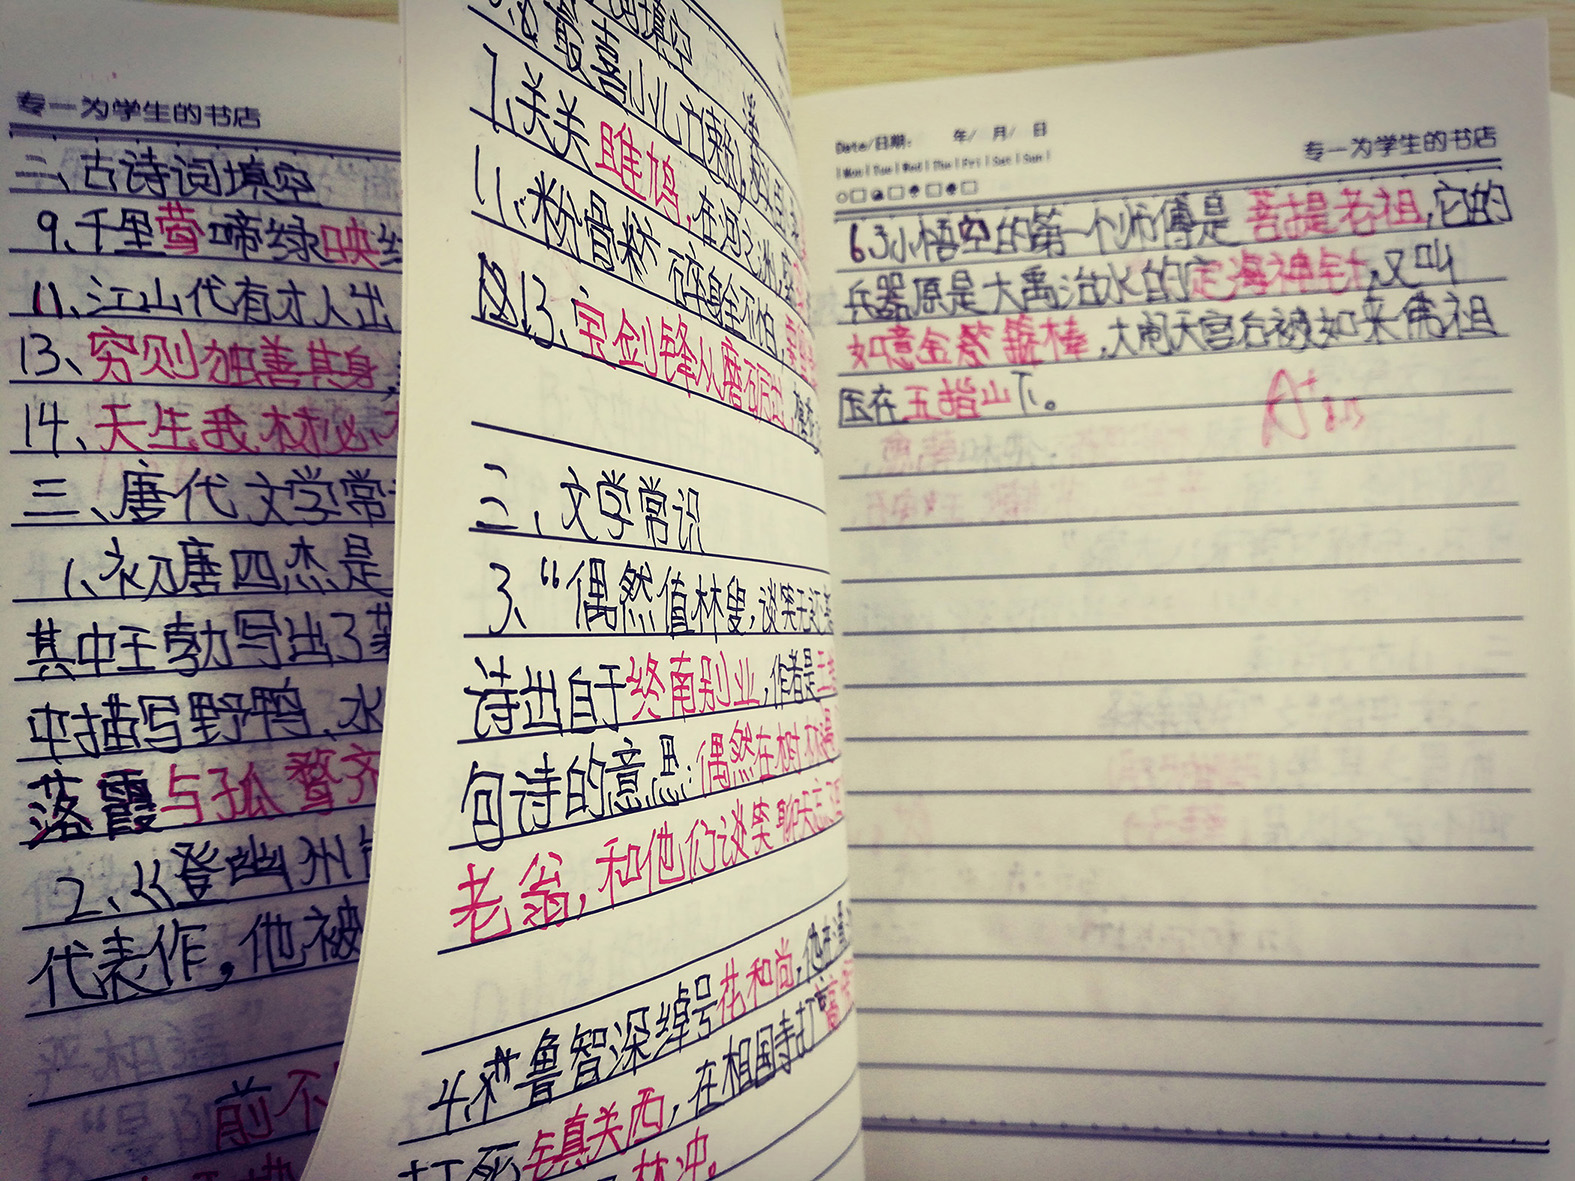 专一为学生的书店
二、古诗词填空
9、千里莺啼绿映红
11、江山代有才人出
13、穷则独善其身,
14、天生我材必
三、唐代文学常
1、初唐四杰是
其中王勃写出了
中描写野鸭、水
落霞与孤鹜齐
2、《登幽州
代表作，他被
前不
词填空
最喜小儿亡赖
7、关关雎鸠,在河之洲,
11、粉骨碎身全不怕,
13、宝剑锋从磨砺出,
三、文学常识
3、“偶然值林叟,谈笑无还
诗出自于终南别业,作者是王
句诗的意思:偶然在树林遇
老翁,和他们谈笑聊天忘了
4、鲁智深绰号花和尚,他在
打死镇关西,在相国寺打
林冲。
Date/日期: 年/ 月/ 日
专一为学生的书店
|Mon|Tue|Wed|Thu|Fri|Sat|Sun|
6、孙悟空的第一个师傅是菩提老祖,它的
兵器原是大禹治水的定海神针,又叫
如意金箍棒,大闹天宫后被如来佛祖
压在五指山下。
A+